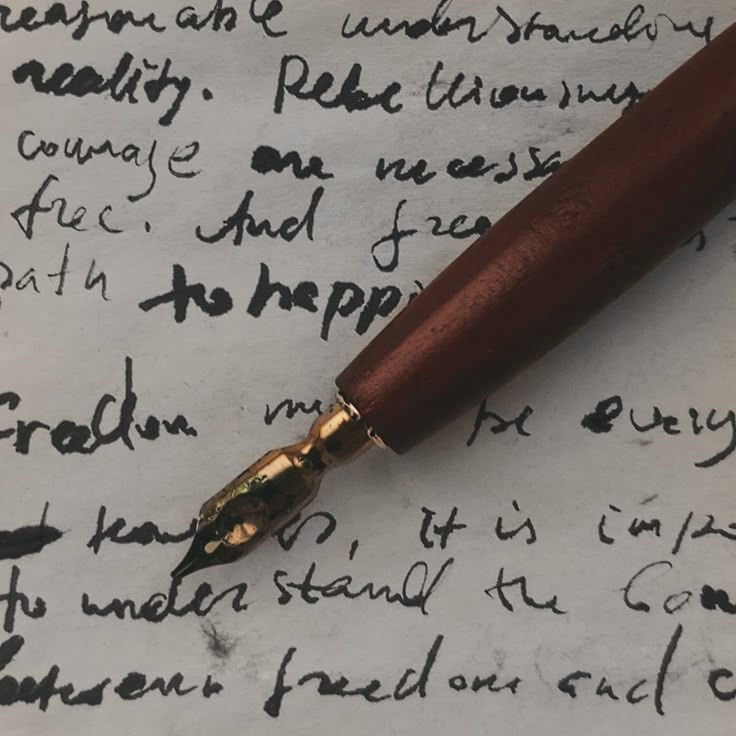 reasonable understanding
reality. Rebelliousness
courage are necessa
free. And free
path to happi
Freedom be every
it is impo
to understand the
between freedom and c